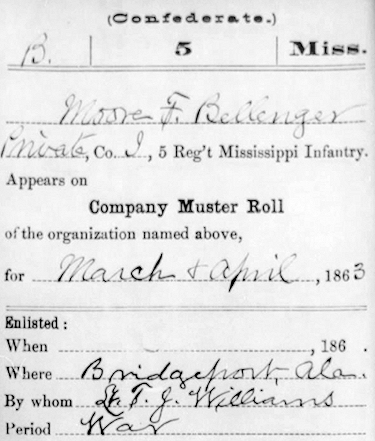 (Confederate.)
B. 5 Miss.
Moore F. Bellenger
Private, Co. I, 5 Reg't Mississippi Infantry.
Appears on
Company Muster Roll
of the organization named above,
for March & April, 1863
Enlisted:
When , 186 .
Where Bridgeport, Ala.
By whom T. J. Williams
Period War